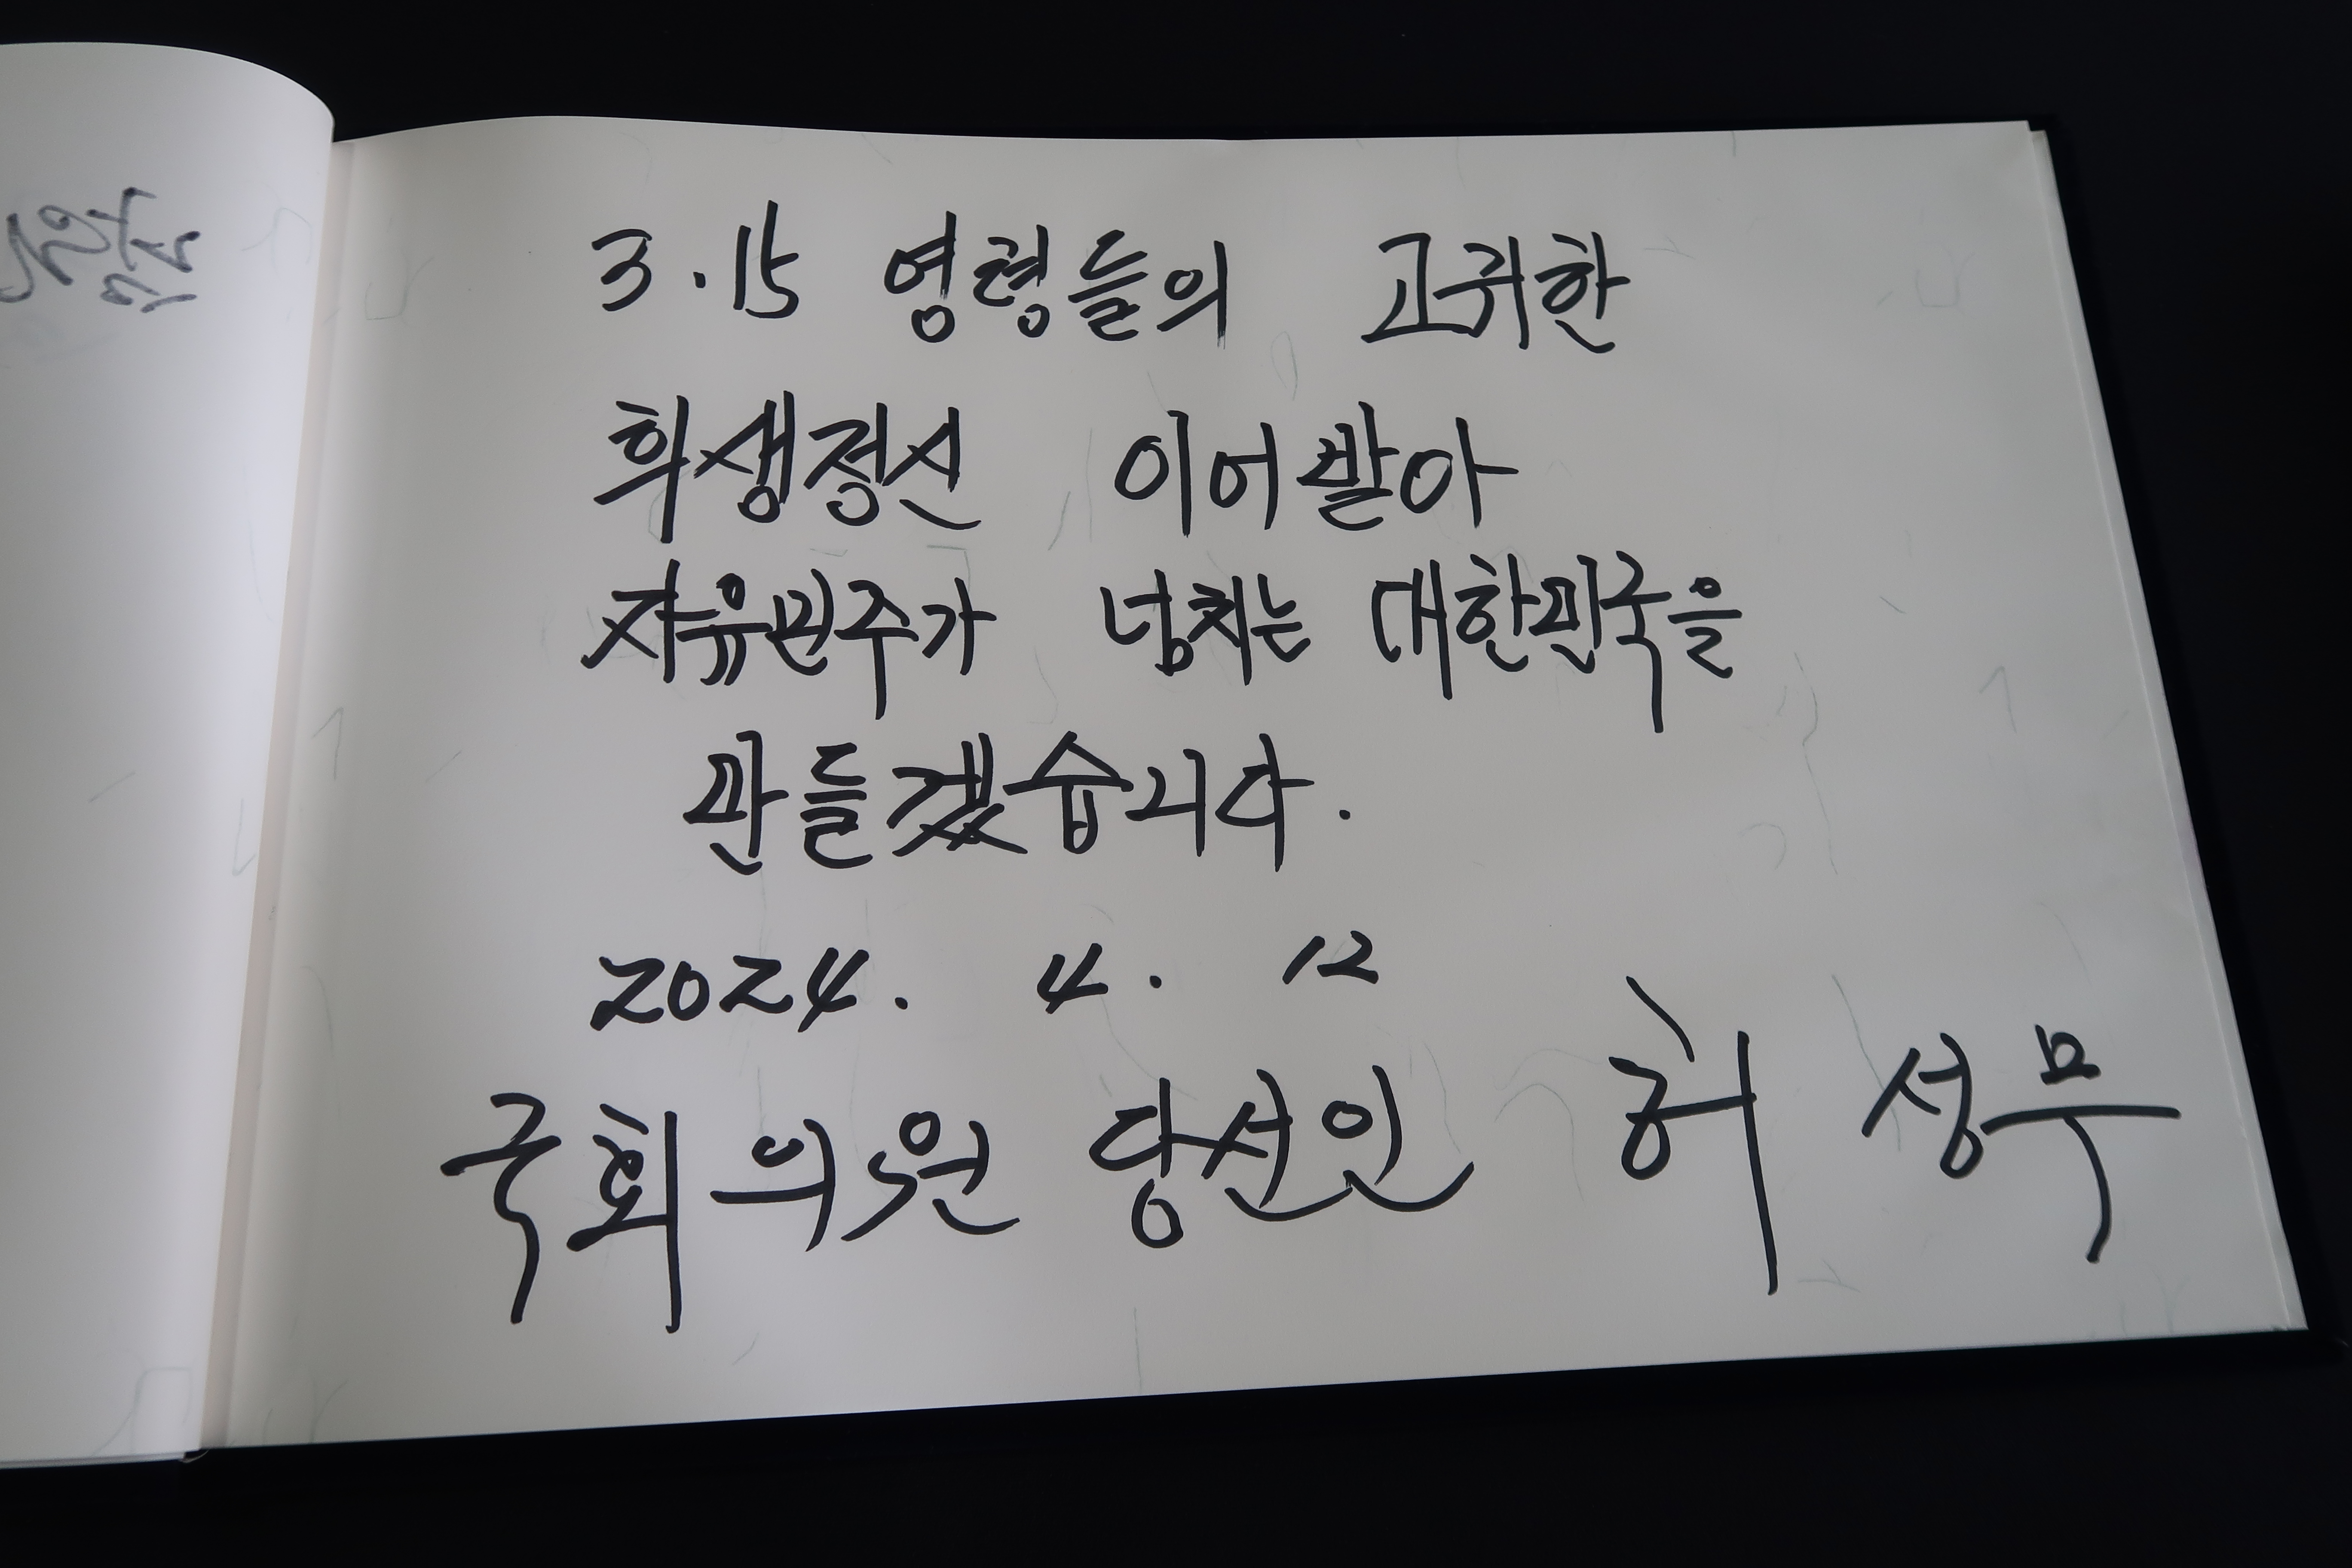 3.15 영령들의 고귀한
희생정신 이어받아
자유민주가 넘치는 대한민국을
만들겠습니다.
2024. 4. 12
국회의원 당선인 허성무